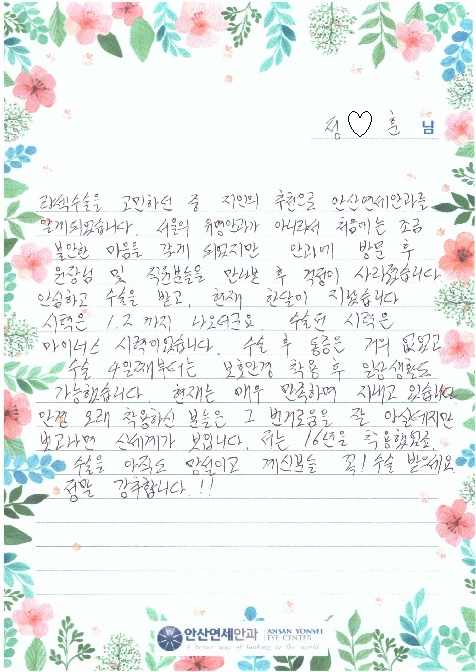 정♡훈 님
라섹수술을 고민하던 중 지인의 추천으로 안산연세안과를
알게되었습니다. 서울의 유명안과가 아니라서 처음에는 조금
불안한 마음을 갖게 되었지만 안과에 방문 후
원장님 및 직원분들을 만나본 후 걱정이 사라졌습니다
안심하고 수술을 받고, 현재 한달이 지났습니다
시력은 1.2 까지 나오더군요. 수술전 시력은
마이너스 시력이었습니다. 수술 후 통증은 거의 없었고
수술 4일째부터는 보호안경 착용 후 일상생활도
가능했습니다. 현재는 매우 만족하며 지내고 있습니다
안경 오래 착용하신 분들은 그 번거로움을 잘 아실테지만
벗고나면 신세계가 보입니다. 저는 16년을 착용했었고
수술을 아직도 망설이고 계신분들 꼭! 수술 받으세요
정말 강추합니다.!!
안산연세안과 ANSAN YONSEI
EYE CENTER
A better way of looking at the world